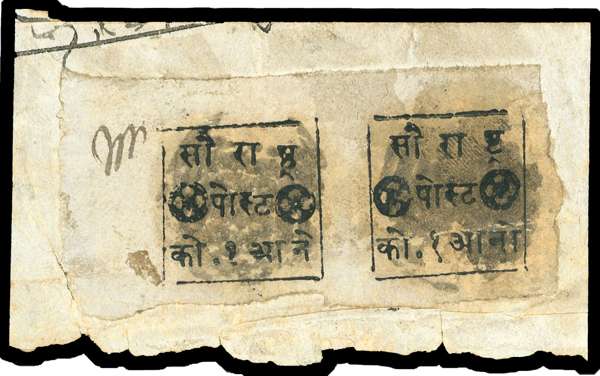 सौ राष्ट्र
पोस्ट
को. १ आने
सौ राष्ट्र
पोस्ट
को. १ आना